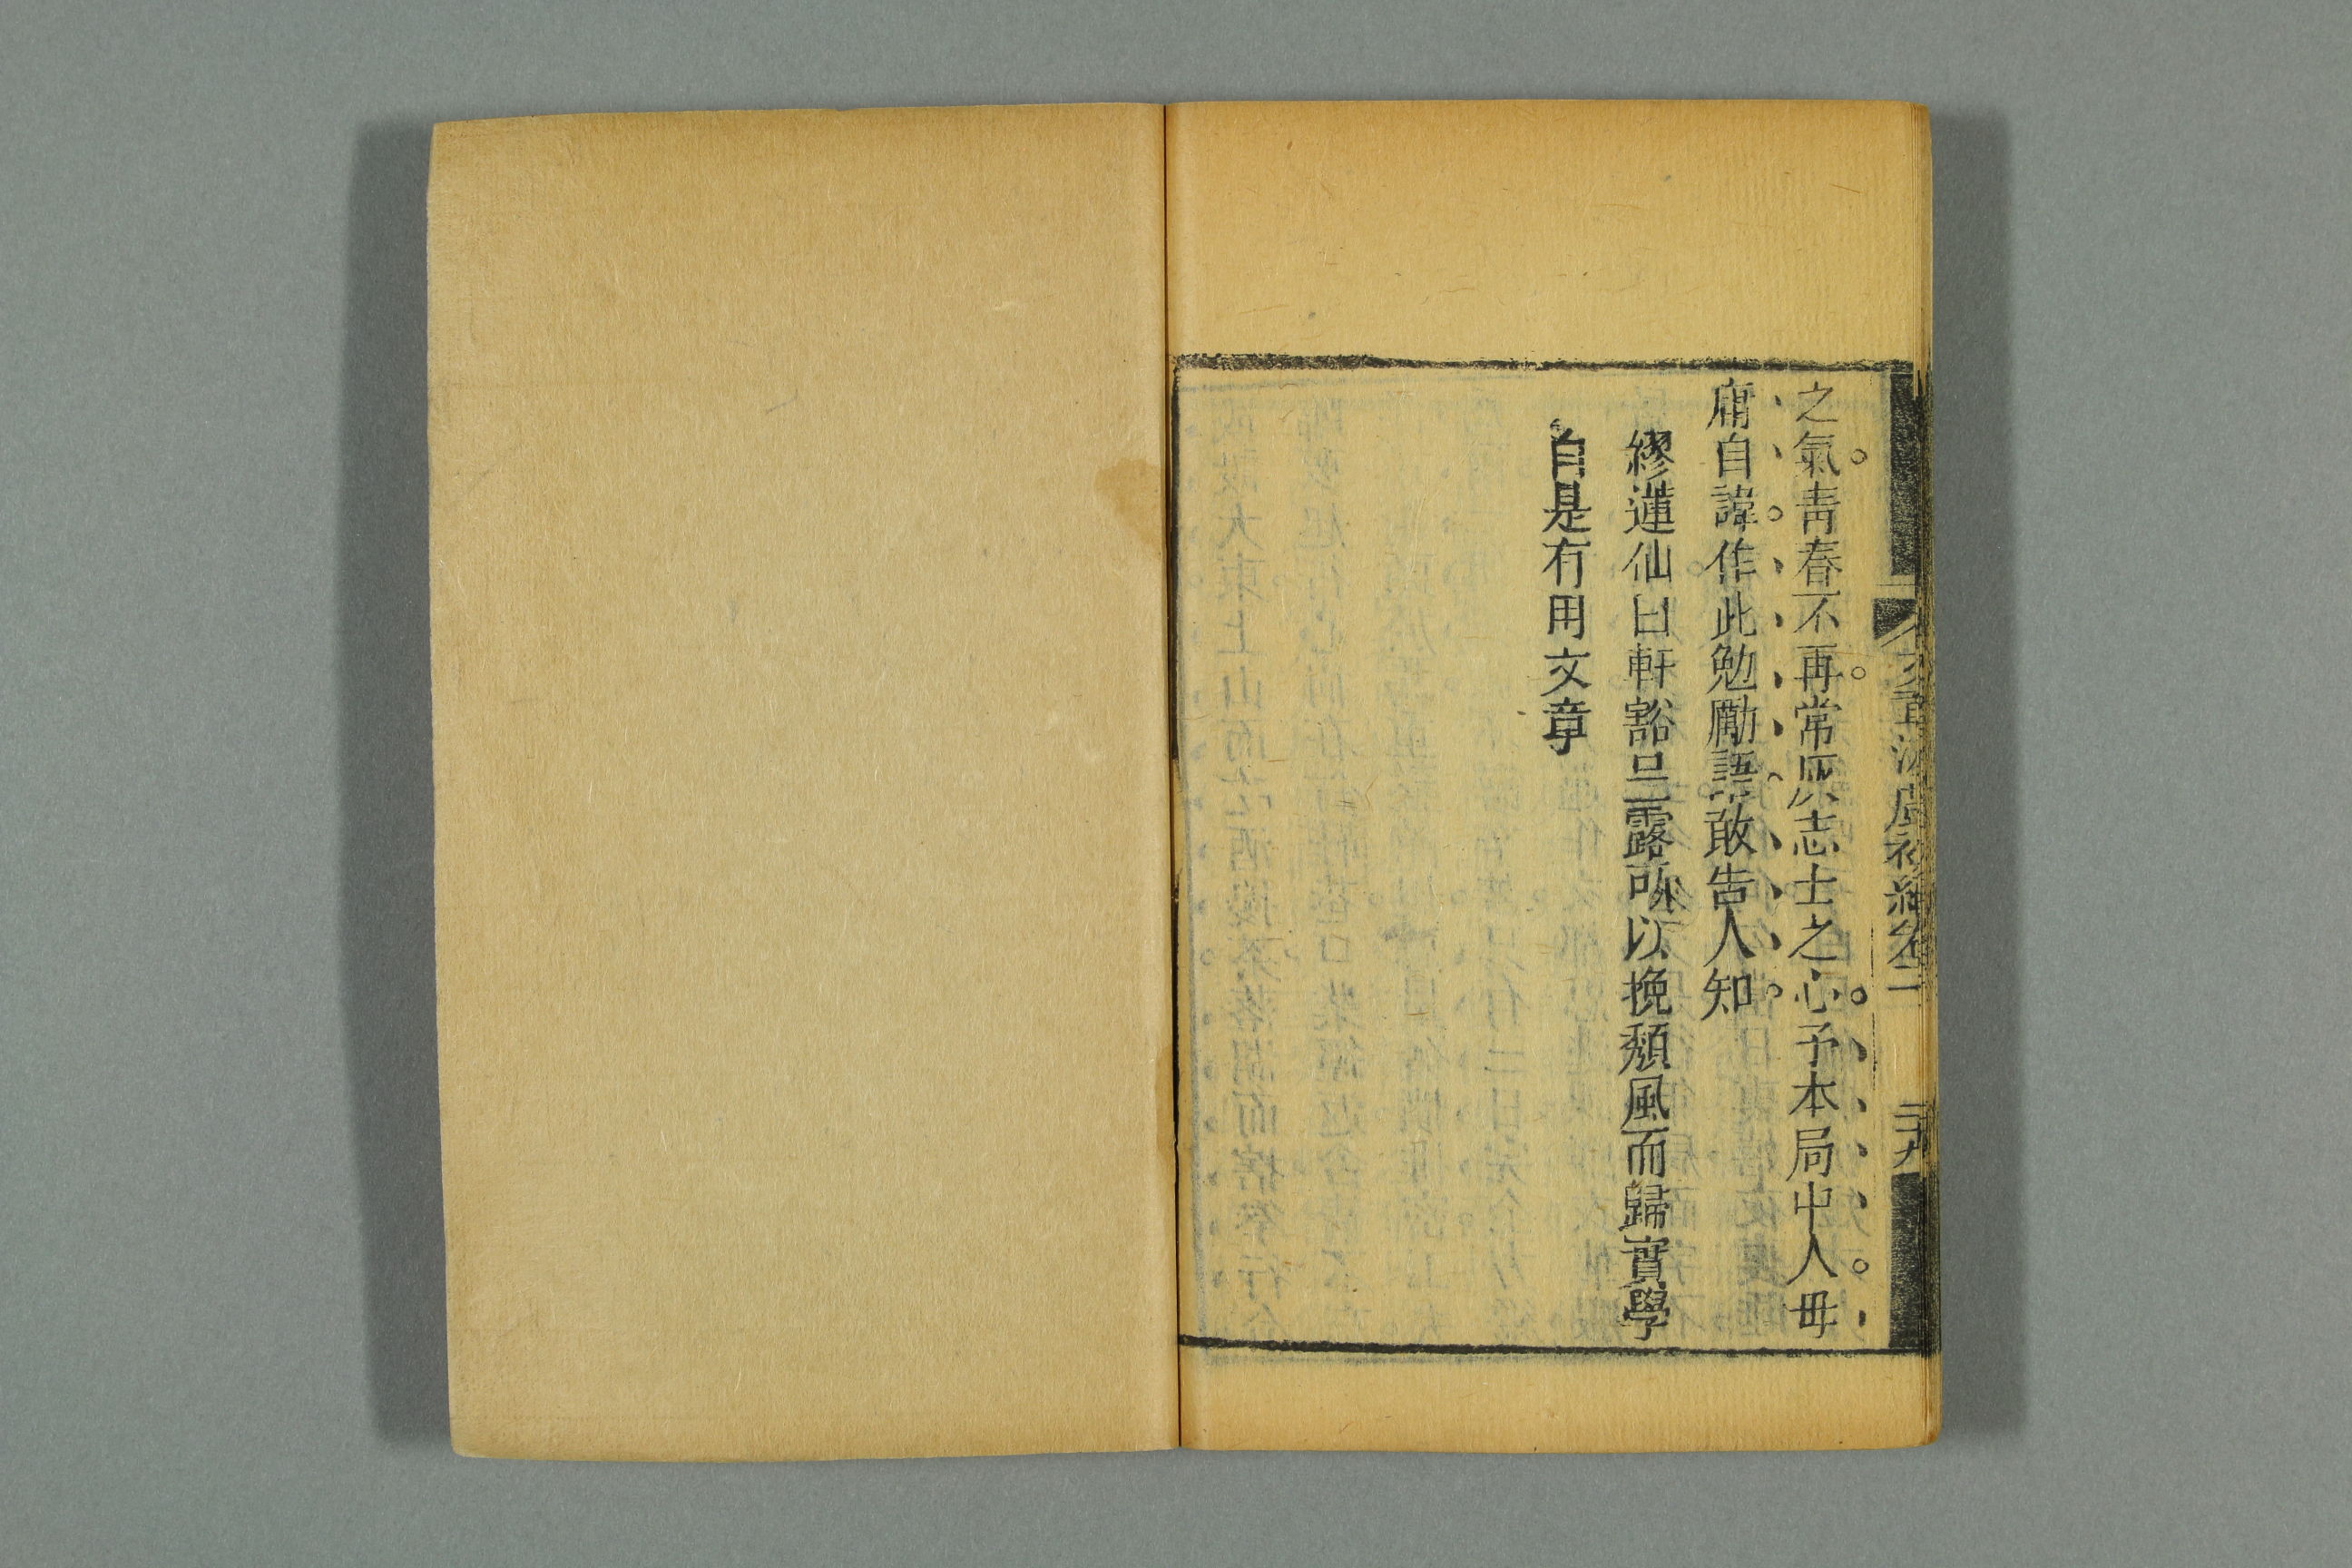 之氣青春不再常灰志士之心予本局中人毋
庸自諱作此勉勵語敢告人知
繆蓮仙曰軒豁呈露可以挽頹風而歸實學
自是有用文章
文章游戲初編卷一
二十九